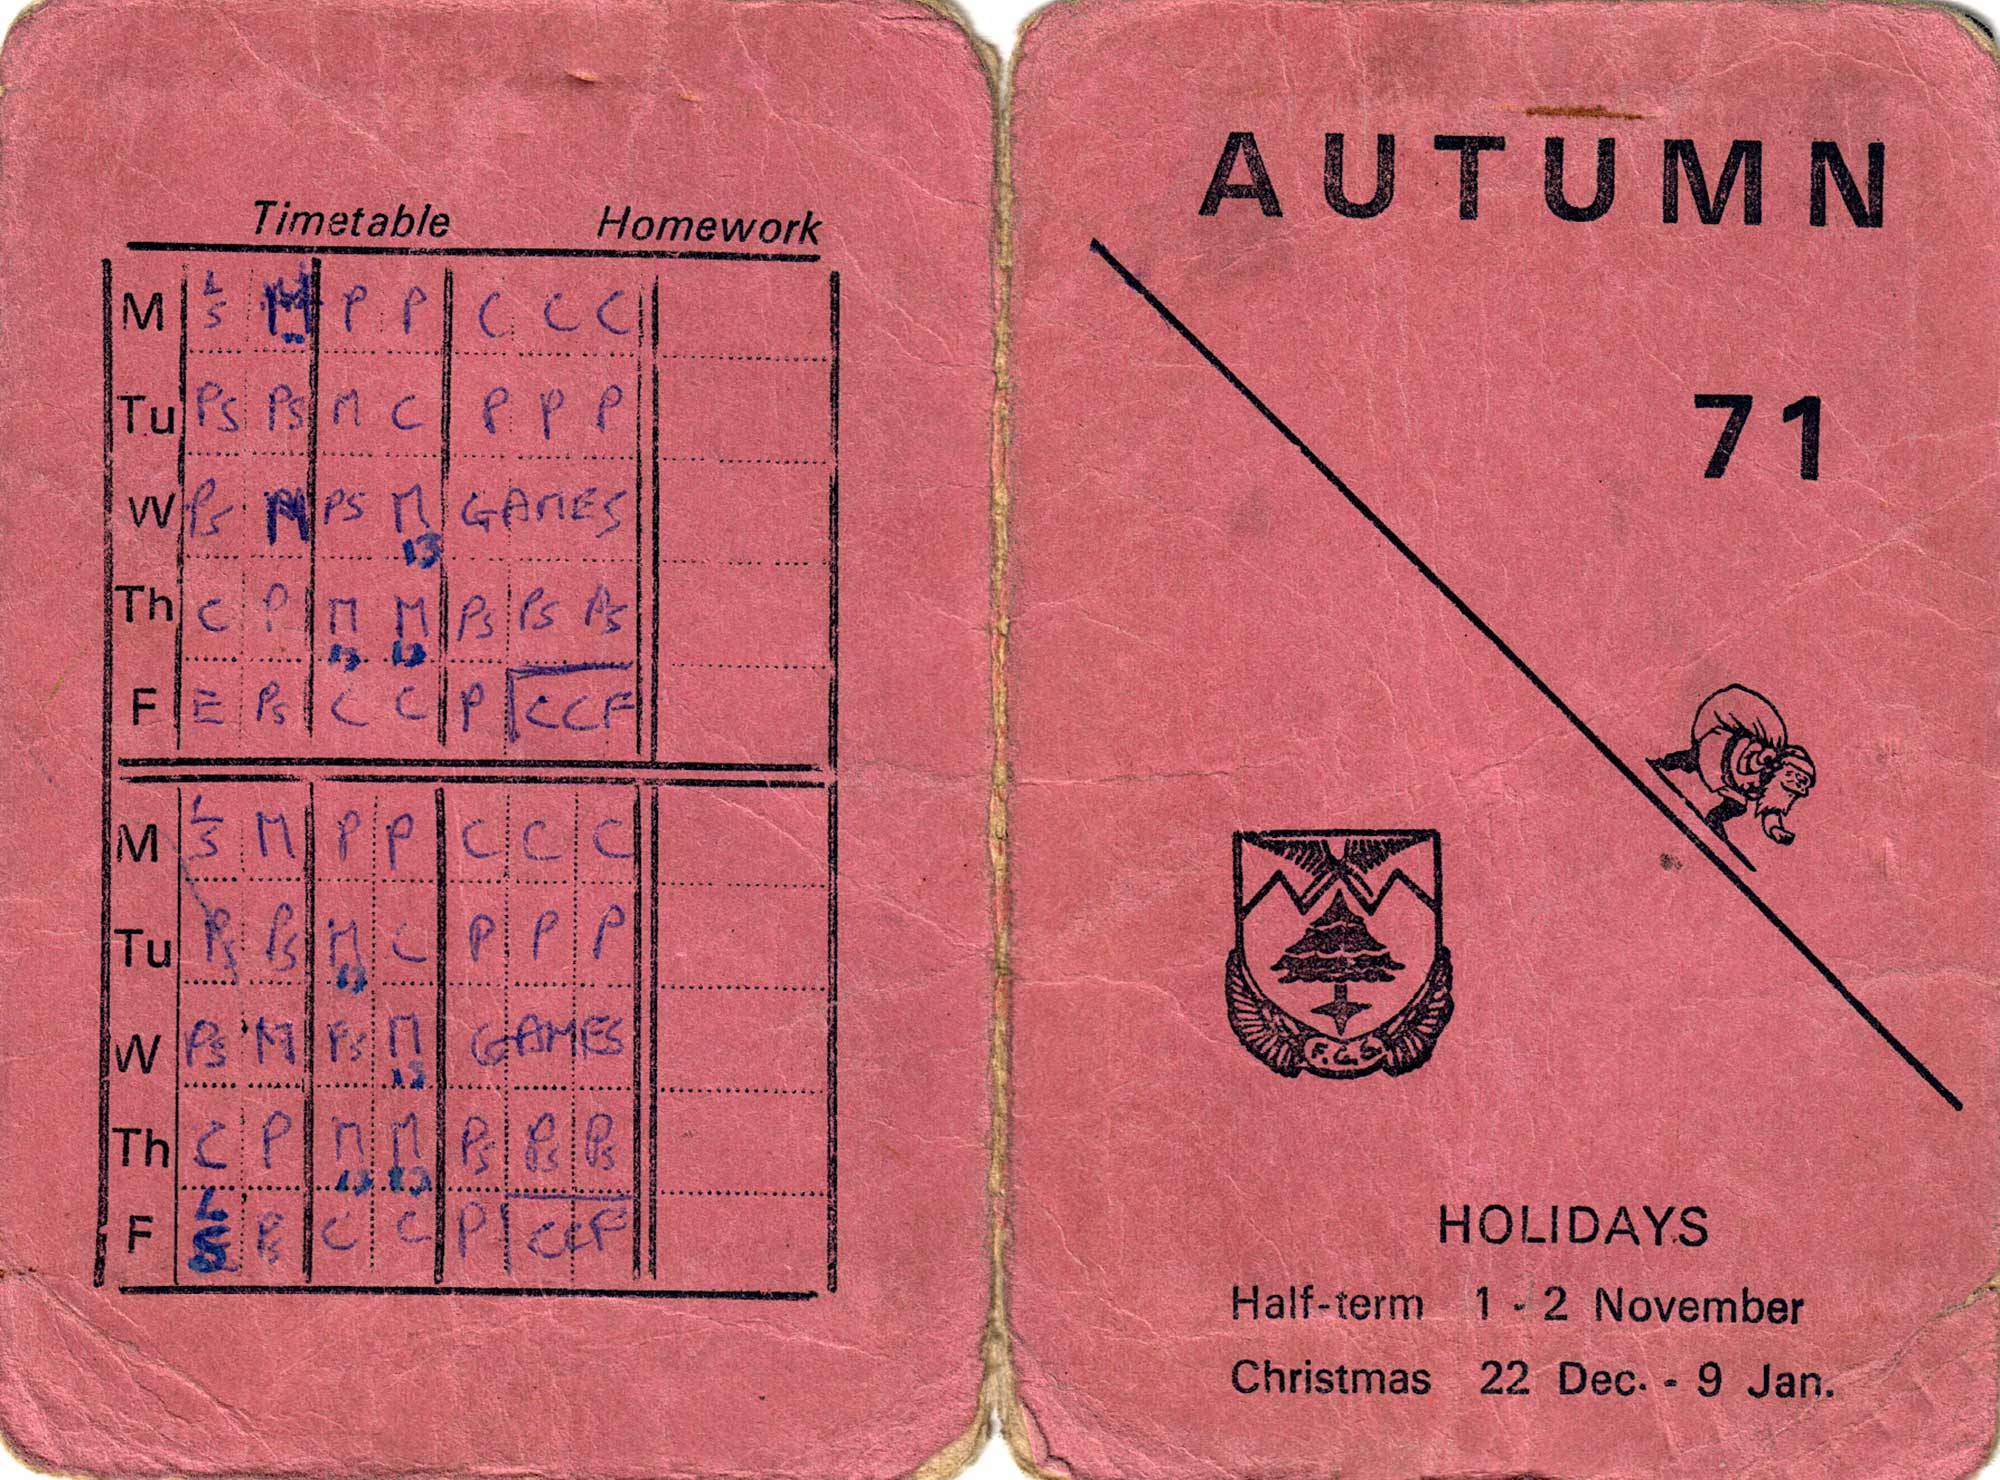 Timetable Homework
M L/S M P P C C C
Tu Ps Ps M C P P P
W Ps M PS M 13 GAMES
Th C P M 13 M 13 Ps Ps Ps
F E Ps C C P CCF
M L/S M P P C C C
Tu Ps Ps M 13 C P P P
W Ps M Ps M 13 GAMES
Th C P M 13 M 13 Ps Ps Ps
F L/S Ps C C P CCF
AUTUMN
71
F.G.S.
HOLIDAYS
Half-term 1 - 2 November
Christmas 22 Dec. - 9 Jan.